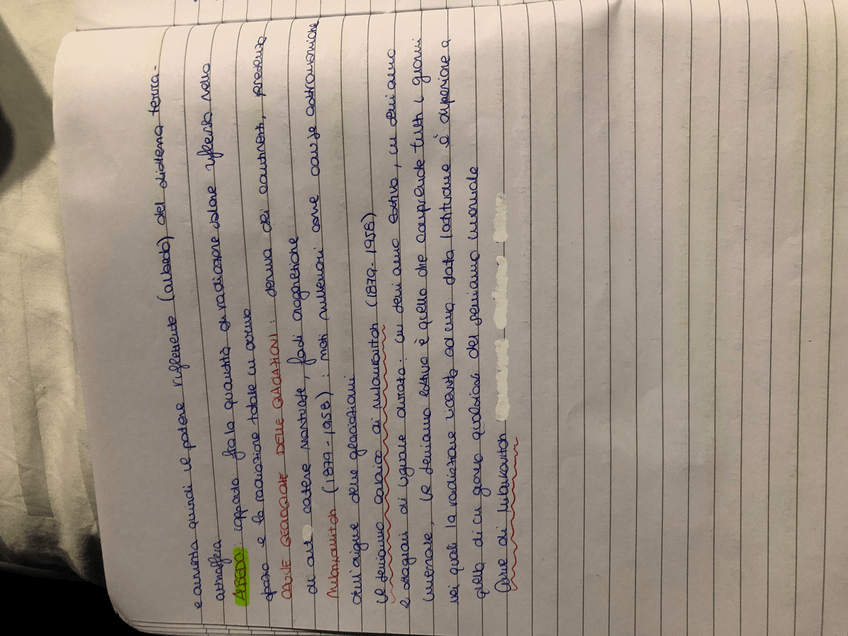 e aumenta quindi il potere riflettente (albedo) del sistema terra-
atmosfera.
ALBEDO: rapporto fra la quantità di radiazione solare riflessa nello
spazio e la radiazione totale in arrivo
CAUSE GEOLOGICHE DELLE GLACIAZIONI: forma dei continenti, presenza
di alte catene montuose, fasi orogenetiche
Milankovitch (1879-1958): moti millenari come cause astronomiche
all'origine delle glaciazioni
Il semiano calorico di Milankovitch (1879-1958)
2 stagioni di uguale durata: un semiano estivo, un semiano
invernale, il semiano estivo è quello che comprende tutti i giorni
nei quali la radiazione ricevuta ad una data latitudine è superiore a
quella di un giorno qualsiasi del semiano invernale
Curve di Milankovitch